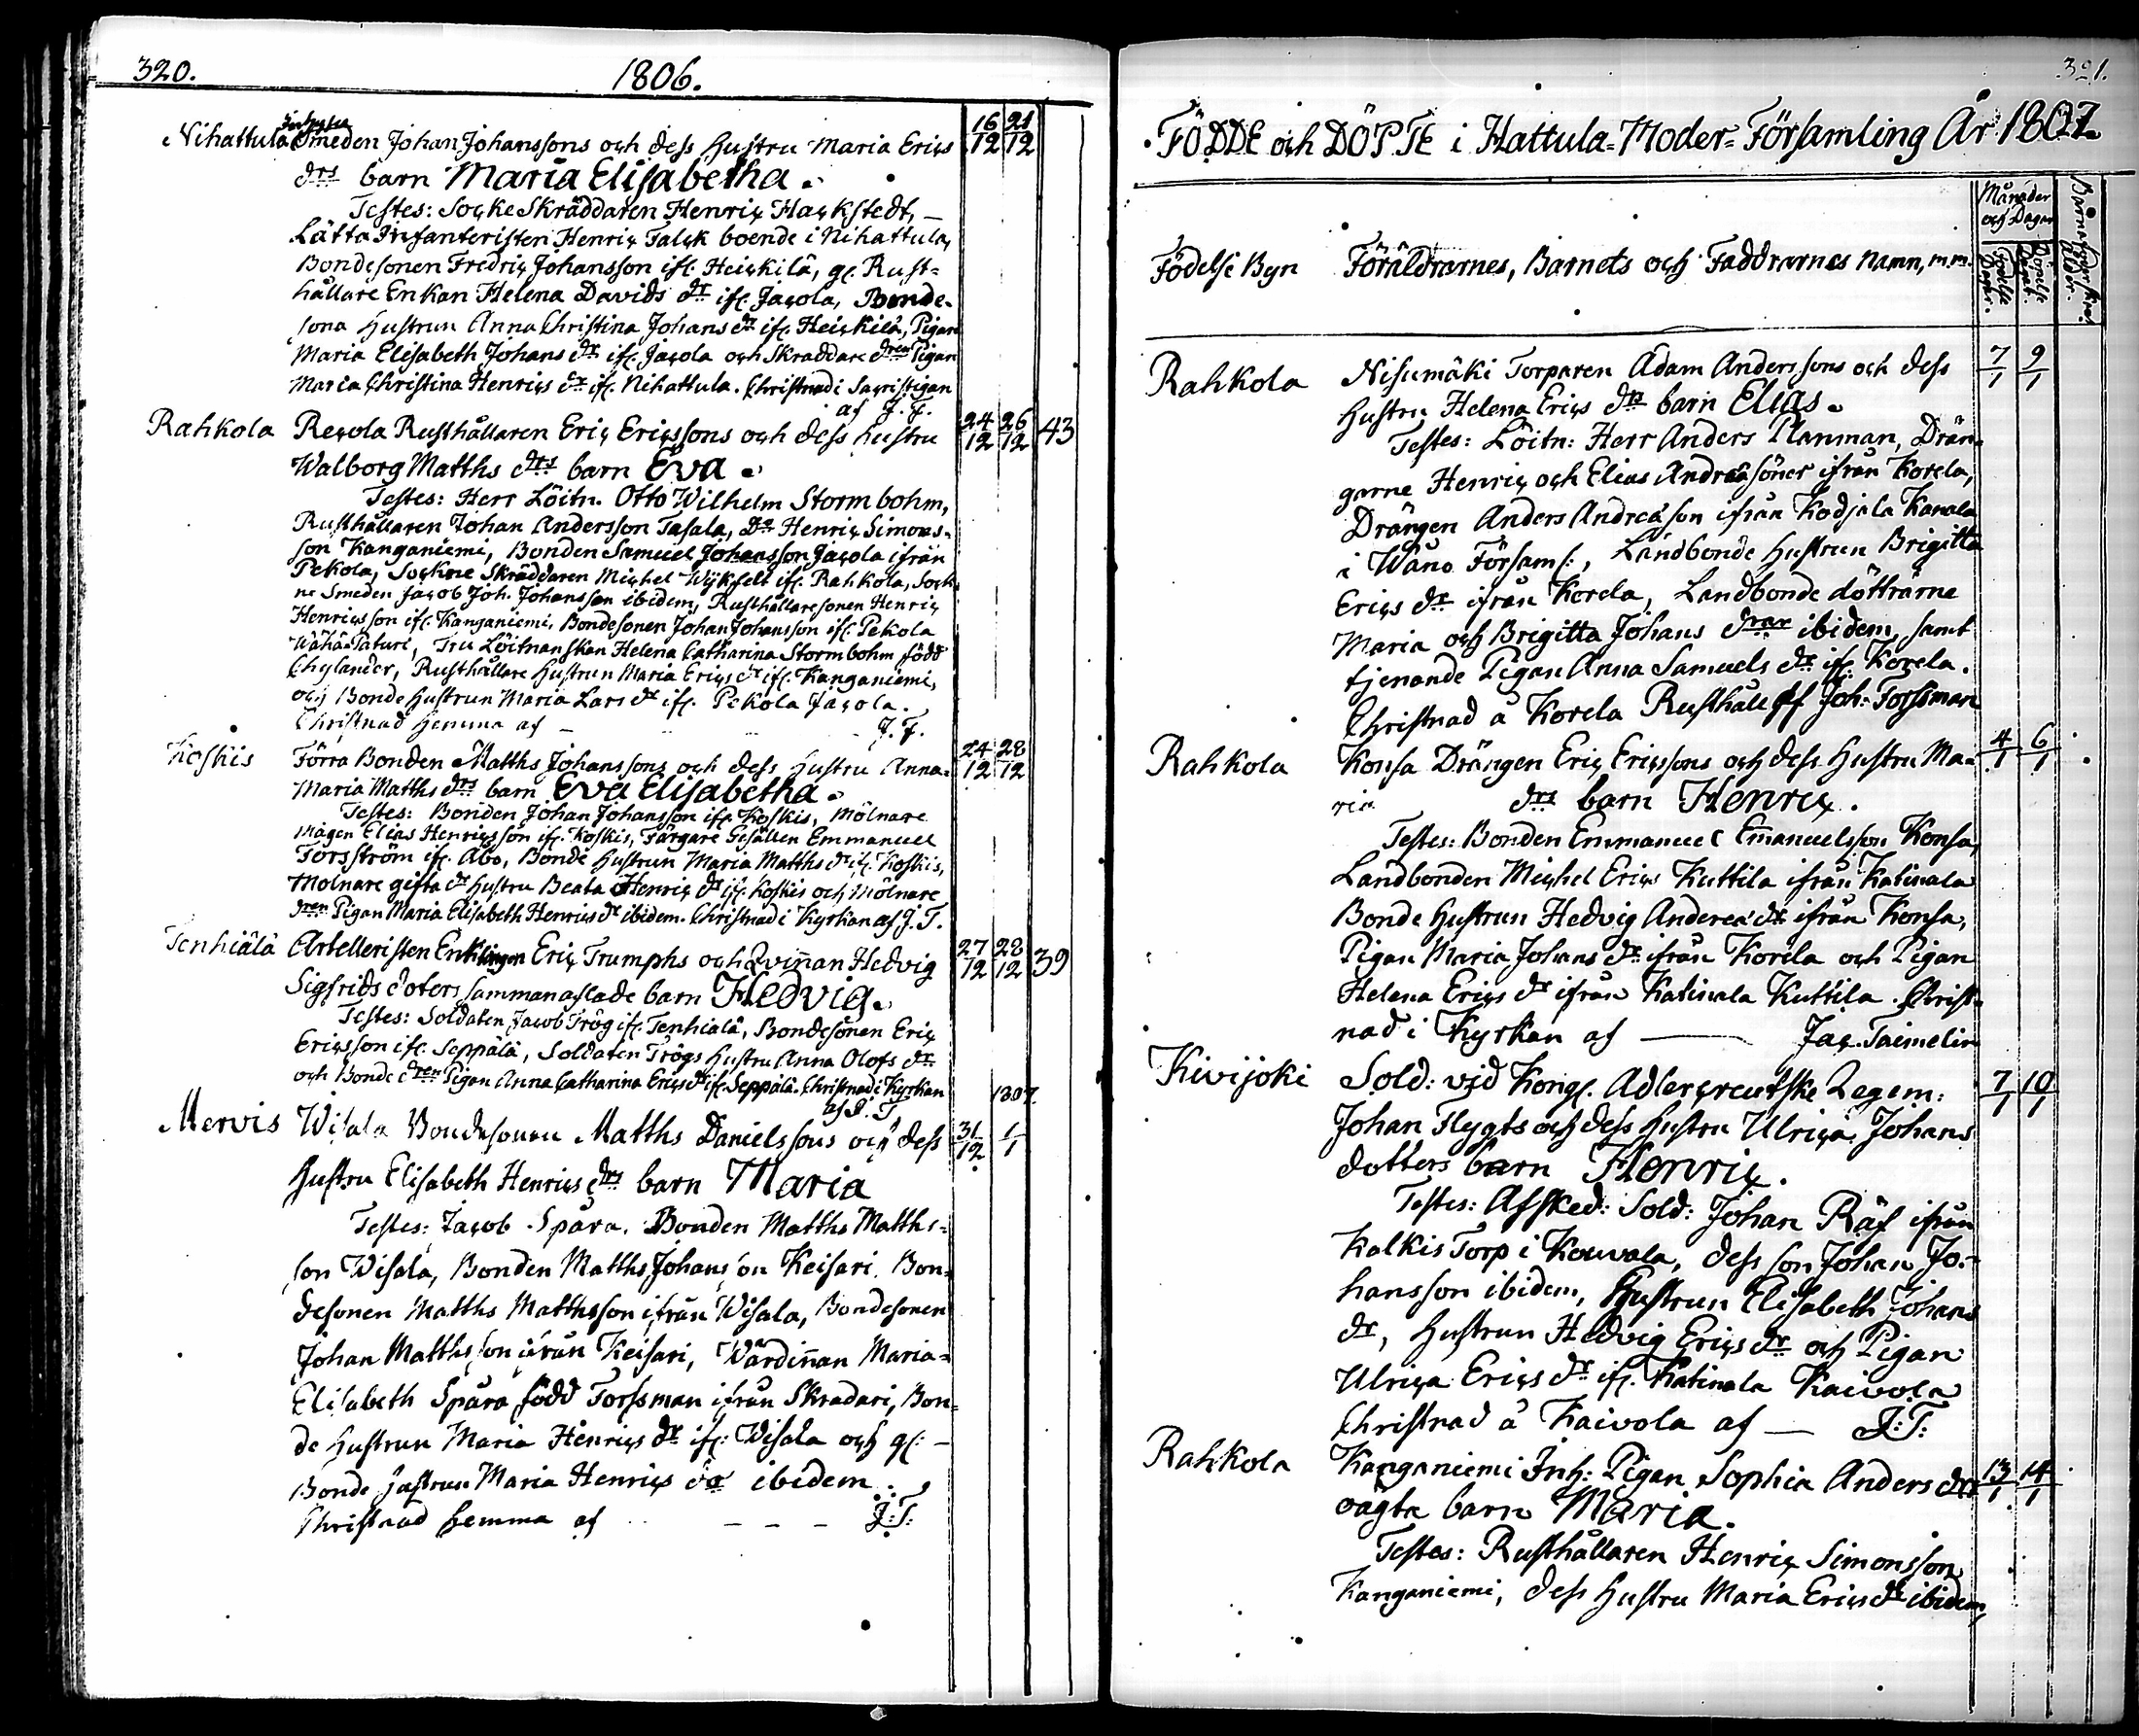 320.
1806.
Nihattula Smeden Johan Johanssons och dess Hustru Maria Erics 16/12 21/12
drs barn Maria Elisabetha.
Testes: Socke Skräddaren Henric Hackstedt, —
Lätta Infanteristen Henric Falck boende i Nihattula,
Bondesonen Fredric Johansson ifl. Heickilä, gl. Rust=
hållare Enkan Helena Davids dr ifl. Jacola, Bonde-
sona Hustrun Anna Christina Johans dr ifl. Heickilä, Pigan
Maria Elisabeth Johans dr ifl. Jacola och Skraddare dren Pigan
Maria Christina Henrics dr ifl. Nihattula. Christnad i Sacristigan
af J. T.
Rahkola Recola Rusthållaren Eric Ericssons och dess hustru 24/12 26/12 43
Walborg Matths drs barn Eva.
Testes: Herr Löitn. Otto Wilhelm Stormbohm,
Rusthållaren Johan Andersson Tasala, Do Henric Simons-
son Kanganiemi, Bonden Samuel Johansson Jacola ifrån
Pekola, Sockne Skräddaren Michel Wijkfelt ifl. Rahkola, Sock-
ne Smeden Jacob Joh. Johansson ibidem, Rusthållaresonen Henric
Henricsson ifl. Kanganiemi, Bondesonen Johan Johansson ifl. Pekola
Wähä-Paturi, Fru Löitnanskan Helena Catharina Stormbohm född
Chylander, Rusthållare Hustrun Maria Erics dr ifl. Kanganiemi,
och Bonde Hustrun Maria Lars dr ifl. Pekola Jacola.
Christnad hemma af — J. T.
Koskis Förra Bonden Matths Johanssons och dess Hustru Anna- 24/12 28/12
Maria Matths drs barn Eva Elisabetha.
Testes: Bonden Johan Johansson ifl. Koskis, Mölnare
mågen Elias Henricsson ifl. Koskis, Färgare Gesällen Emmanuel
Forsström ifl. Åbo, Bonde Hustrun Maria Matths dr ifl. Koskis,
Molnare gifta dr Hustru Beata Henric dr ifl. Koskis och Mölnare
dren Pigan Maria Elisabeth Henrics dr ibidem. Christnad i Kyrkan af J. T.
Tenhiälä Artelleristen Enklingen Eric Trumphs och Qvinnan Hedvig 27/12 28/12 39
Sigfrids doters sammanaflade barn Hedvig.
Testes: Soldaten Jacob Trög ifl. Tenhialä, Bondesonen Eric
Ericsson ifl. Seppälä, Soldaten Trögs Hustru Anna Olofs dr
och Bonde dren Pigan Anna Catharina Erics dr ifl. Seppälä. Christnad i Kyrkan
af J. T. 1807.
Mervis Wisala Bondesonen Matths Danielssons och dess 31/12 1/1
Hustru Elisabeth Henrics drs barn Maria
Testes: Jacob Spåra. Bonden Matths Matths-
son Wisala, Bonden Matths Johansson Keisari. Bon-
desonen Matths Matthsson ifrån Wisala, Bondesonen
Johan Matthsson ifrån Keisari, Wärdinnan Maria-
Elisabeth Spåra född Forssman ifrån Skradari, Bon-
de Hustrun Maria Henrics dr ifl: Wisala och gl: —
Bonde Hustrun Maria Henrics dr ibidem.
Christnad hemma af — — — J: T:
321.
FÖDDE och DÖPTE i Hattula=Moder=Församling År 1807.
Månader och Dagar
Födelse Byn Föräldrarnes, Barnets och Faddrarnes Namn, m.m. Födelse Dagar. Döpelse Dagar.
Rahkola Nisumäki Torparen Adam Anderssons och dess 7/1 9/1
Hustru Helena Erics drs barn Elias.
Testes: Löitn: Herr Anders Planman, Drän-
garne Henric och Elias Andreä söner ifrån Korela,
Drängen Anders Andreäson ifrån Kodjala Kanala
i Wåno Församl:, Landbonde Hustrun Brigitta
Erics dr ifrån Korela, Landbonde döttrarne
Maria och Brigitta Johans drar ibidem, samt
tjenande Pigan Anna Samuels dr ifl. Korela.
Christnad å Korela Rusthåll af Joh: Forssman
Rahkola Konsa Drängen Eric Ericssons och dess Hustru Ma- 4/1 6/1
ria drs barn Henric.
Testes: Bonden Emmanuel Emanuelsson Konsa,
Landbonden Michel Erics Kuttila ifrån Katinala
Bonde Hustrun Hedvig Andereä dr ifrån Konsa,
Pigan Maria Johans dr ifrån Korela och Pigan
Helena Erics dr ifrån Katinala Kuttila. Christ-
nad i Kyrkan af — Jac. Taimelin
Kivijoki Sold: vid Kongl. Adlercreutske Regem: 7/1 10/1
Johan Flygts och dess Hustru Ulrica Johans
dotters barn Henric.
Testes: Afsked: Sold: Johan Räf ifrån
Kalkis Torp i Kouvala, dess son Johan Jo-
hansson ibidem, Hustrun Elisabeth Johans
dr, Hustrun Hedvig Erics dr och Pigan
Ulrica Erics dr ifl. Katinala Kaivola
Christnad å Kaivola af — J: T:
Rahkola Kanganiemi Inh: Pigan Sophia Anders drs 13/1 14/1
oägta barn Maria.
Testes: Rusthållaren Henric Simonsson
Kanganiemi, dess Hustru Maria Erics dr ibidem,